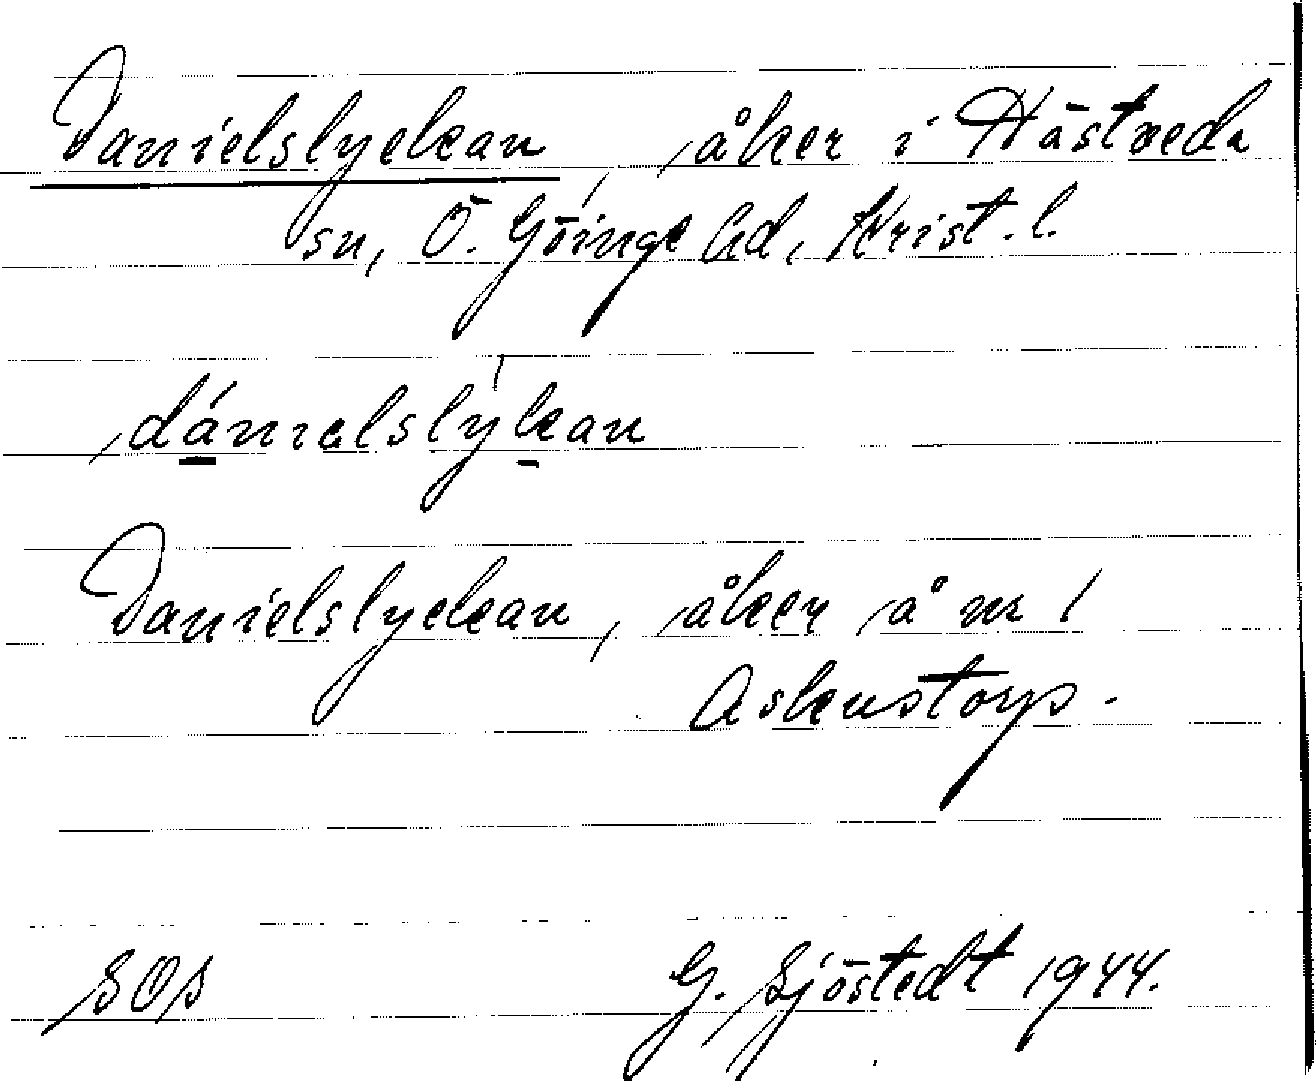 Danielslyckan, åker i Hästveda
sn, Ö. Göinge hd, Krist. l.
dánielslỳkan
Danielslyckan, åker å nr 1
Askenstorp.
SOS G. Sjöstedt 1944.